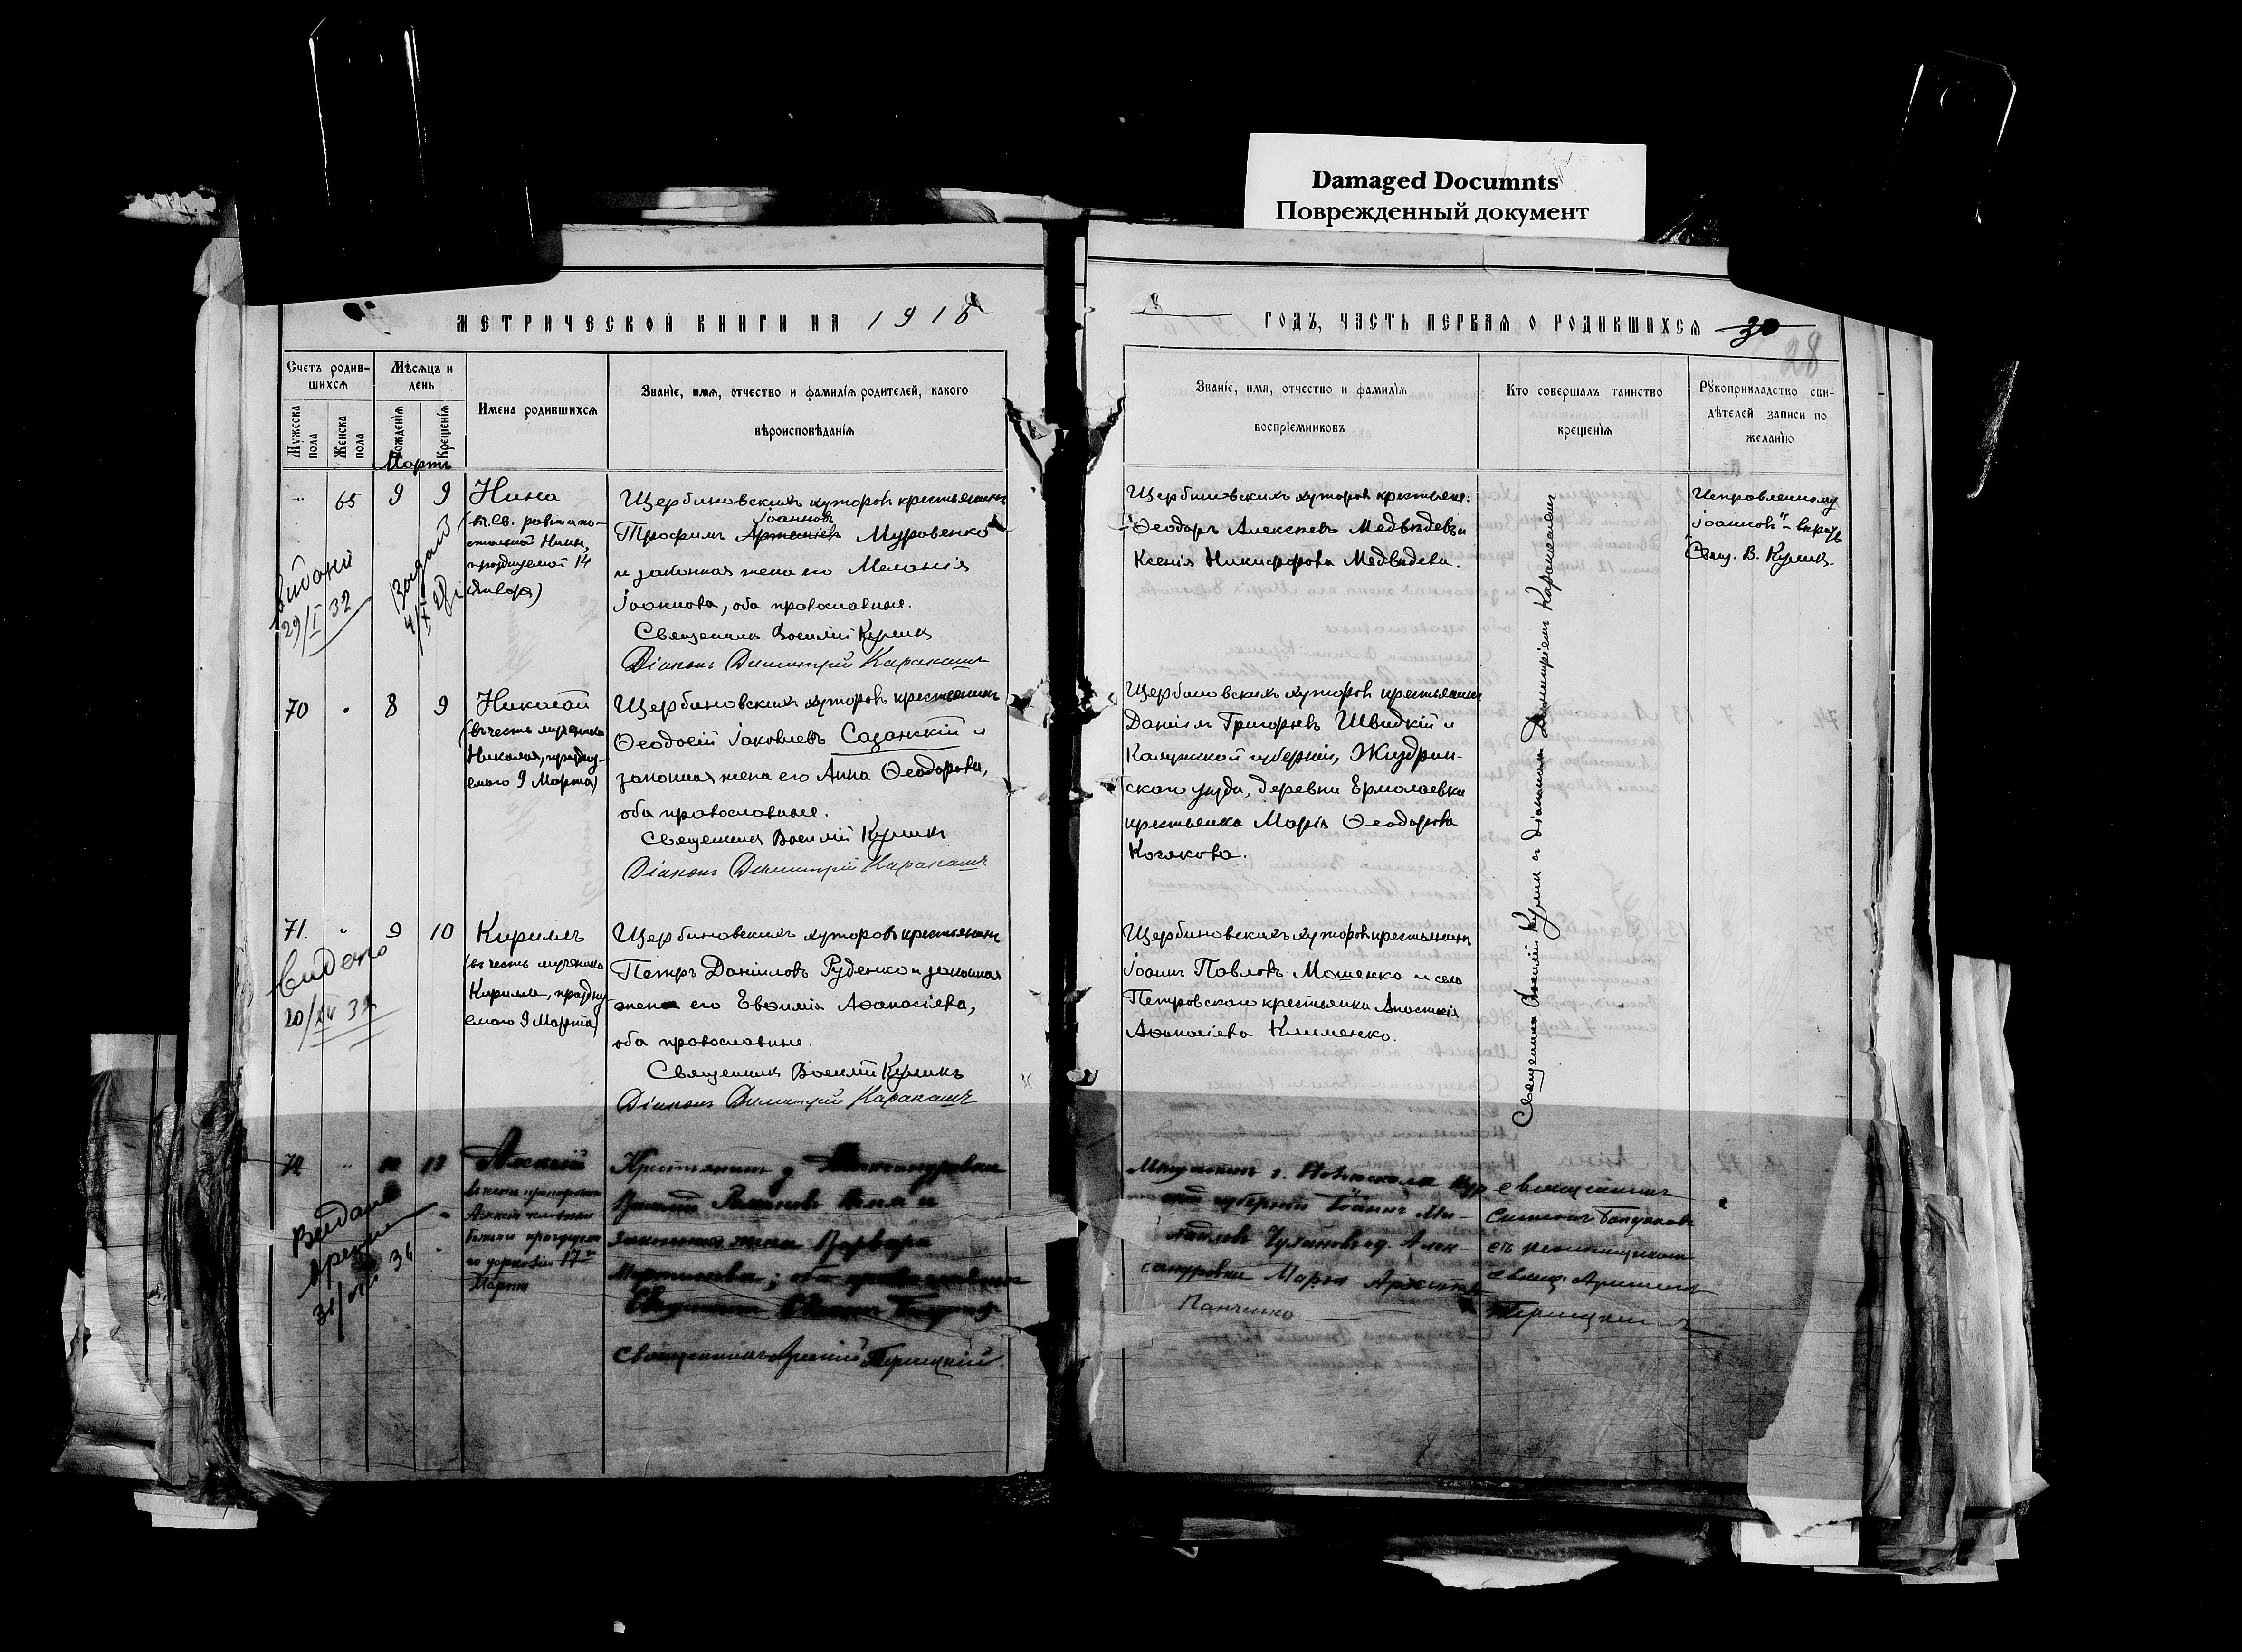 Damaged Documnts
Поврежденный документ
МЕТРИЧЕСКОЙ КНИГИ НА 1916
ГОДЪ, ЧАСТЬ ПЕРВАЯ О РОДИВШИХСЯ 30
28
Счетъ родив-
шихся
Мѣсяцъ и
день
Имена родившихся
Званіе, имя, отчество и фамилія родителей, какого
вѣроисповѣданія
Мужеска
пола
Женска
пола
Рожденія
Крещенія
Званіе, имя, отчество и фамилія
воспріемниковъ
Кто совершалъ таинство
крещенія
Рукоприкладство сви-
дѣтелей записи по
желанію
Мартъ
65 9 9 Нина
(въ св. равноапо-
стольной Нины,
празднуемой 14
января)
Щербиновскихъ хуторовъ крестьянинъ
Іоанновъ
Трофимъ Муровенко
и законная жена его Меланія
Іоаннова, оба православные.
Священникъ Василій Куликъ
Діаконъ Димитрій Каракашъ
Щербиновскихъ хуторовъ крестьяне:
Ѳеодоръ Алексѣевъ Медвѣдевъ и
Ксенія Никифорова Медвѣдева.
Исправленному
"Іоанновъ" - вѣрить
Свящ. В. Куликъ.
видано
29/I 32
4/XI
70 8 9 Николай
(въ честь мученика
Николая, праздну-
емаго 9 Марта)
Щербиновскихъ хуторовъ крестьянинъ
Ѳеодосій Іаковлевъ Сазанскій и
законная жена его Анна Ѳеодорова,
оба православные.
Священникъ Василій Куликъ
Діаконъ Димитрій Каракашъ
Щербиновскихъ хуторовъ крестьянинъ
Даніилъ Григорьевъ Швидкій и
Калужской губерніи, Жиздрин-
скаго уѣзда, деревни Ермолаевки
крестьянка Марія Ѳеодорова
Козакова.
Священникъ Василій Куликъ съ діакономъ Димитріемъ Каракашемъ
71. 9 10 Кириллъ
(въ честь мученика
Кирилла, праздну-
емаго 9 Марта)
Щербиновскихъ хуторовъ крестьянинъ
Петръ Даніиловъ Руденко и законная
жена его Евѳимія Аѳанасіева,
оба православные.
Священникъ Василій Куликъ
Діаконъ Димитрій Каракашъ
Щербиновскихъ хуторовъ крестьянинъ
Іоаннъ Павловъ Мошенко и села
Петровскаго крестьянка Анастасія
Аѳанасіева Клименко.
видано
72 13 Алексій
Алексія человѣка
Божія празднуем
17го
Марта
Крестьянинъ д. Александровки
законная жена Варвара
Мартинова; оба православные
Священникъ
Священникъ Арсеній Терлецкій
Мѣщанинъ г. Новооскола Кур
ской губерніи Іоаннъ Ми-
хайловъ и д. Алек-
сандровки Марія
Панченко
Священникъ
Симеонъ
съ
свящ. Арсеніемъ
Терлецкимъ
Видано
34